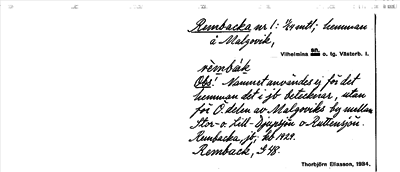 Rembacka nr 1: 1/24 mtl; hemman
å Malgovik,
Vilhelmina sn. o. tg. Västerb. l.
rèmbák
Obs! Namnet användes ej för det
hemman det i jb betecknar, utan
för Ö. delen av Malgoviks by mellan
Stor- o. Lill-Djupsjön o. Rutensjön.
Rembacka, jt, kb 1929.
Remback, 348.
Thorbjörn Eliasson, 1934.